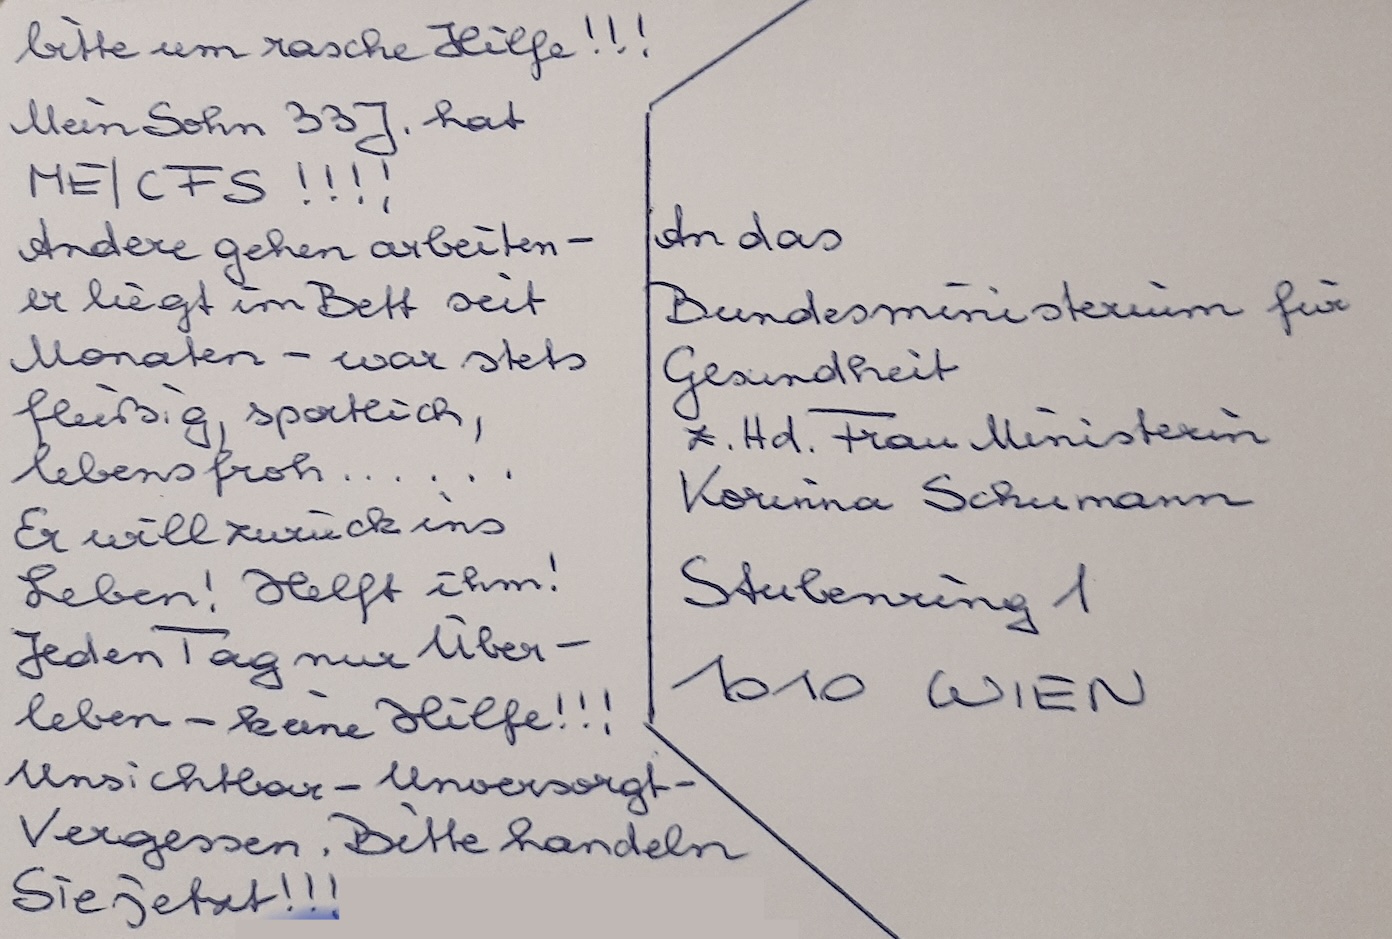 bitte um rasche Hilfe!!!
Mein Sohn 33J. hat
ME/CFS !!!!
Andere gehen arbeiten-
er liegt im Bett seit
Monaten - war stets
fleißig, sportlich,
lebensfroh......
Er will zurück ins
Leben! Helft ihm!
Jeden Tag nur Über-
leben - keine Hilfe!!!
Unsichtbar - Unversorgt-
Vergessen. Bitte handeln
Sie jetzt!!!
An das
Bundesministerium für
Gesundheit
z. Hd. Frau Ministerin
Korinna Schumann
Stubenring 1
1010 WIEN